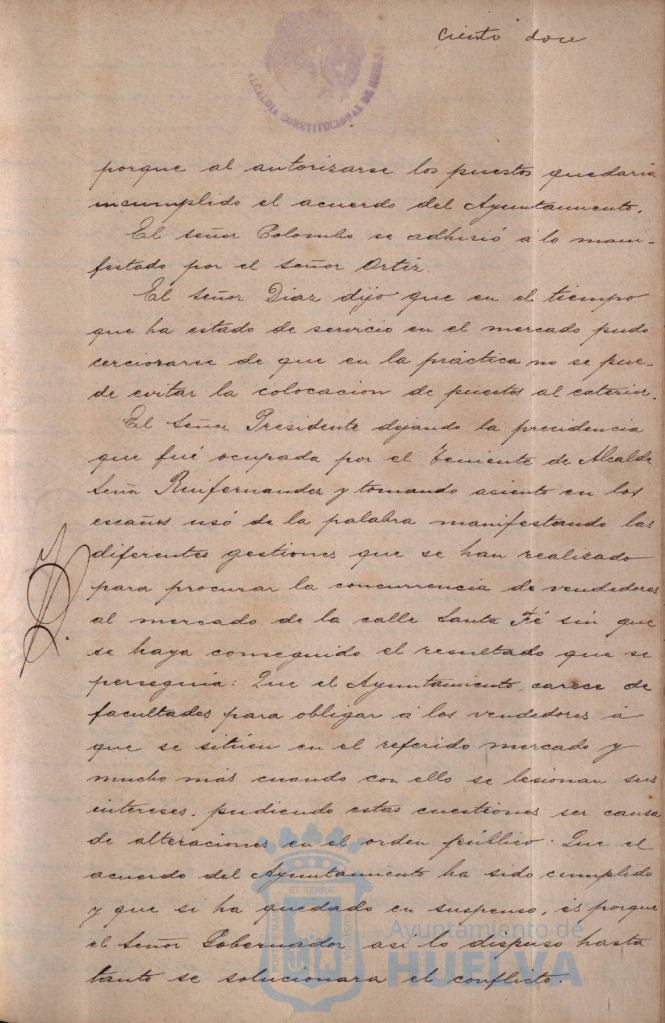 ciento doce
ALCALDIA CONSTITUCIONAL DE HUELVA
porque al autorizarse los puestos quedaria
incumplido el acuerdo del Ayuntamiento.
El señor Colombo se adhirió á lo mani-
festado por el señor Ortiz.
El señor Diaz dijo que en el tiempo
que ha estado de servicio en el mercado pudo
cerciorarse de que en la práctica no se pue-
de evitar la colocacion de puestos al exterior.
El Señor Presidente dejando la presidencia
que fué ocupada por el Teniente de Alcalde
Señor Ruifernandez y tomando asiento en los
escaños usó de la palabra manifestando las
diferentes gestiones que se han realizado
para procurar la concurrencia de vendedores
al mercado de la calle Santa Fé sin que
se haya conseguido el resultado que se
perseguia: Que el Ayuntamiento carece de
facultades para obligar á los vendedores á
que se sitúen en el referido mercado y
mucho más cuando con ello se lesionan sus
intereses, pudiendo estas cuestiones ser causa
de alteraciones en el orden público. Que el
acuerdo del Ayuntamiento ha sido cumplido
y que si ha quedado en suspenso, és porque
el Señor Gobernador asi lo dispuso hasta
tanto se solucionara el conflicto.
Ayuntamiento de
HUELVA